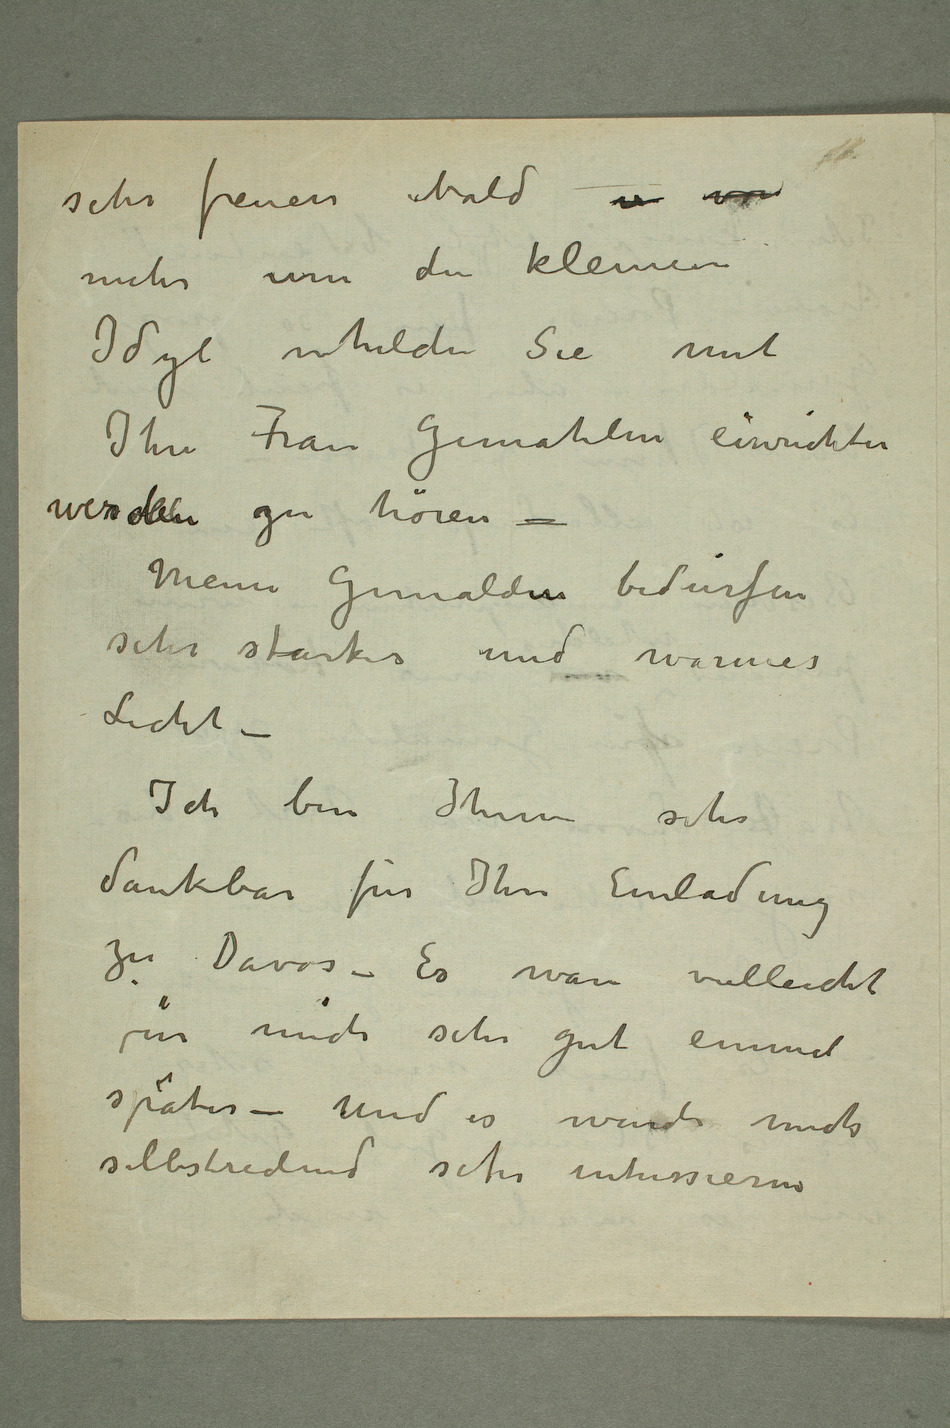 sehr freuen bald
mehr um den kleinen
Idyl welchen Sie mit
Ihre Frau Gemahlin einrichten
werden zu hören –
Meine Gemälden bedürfen
sehr starkes und warmes
Licht –
Ich bin Ihnen sehr
dankbar für Ihre Einladung
zu Davos – Es wäre vielleicht
für mich sehr gut einmal
später – Und es würde mich
selbstredend sehr interessieren